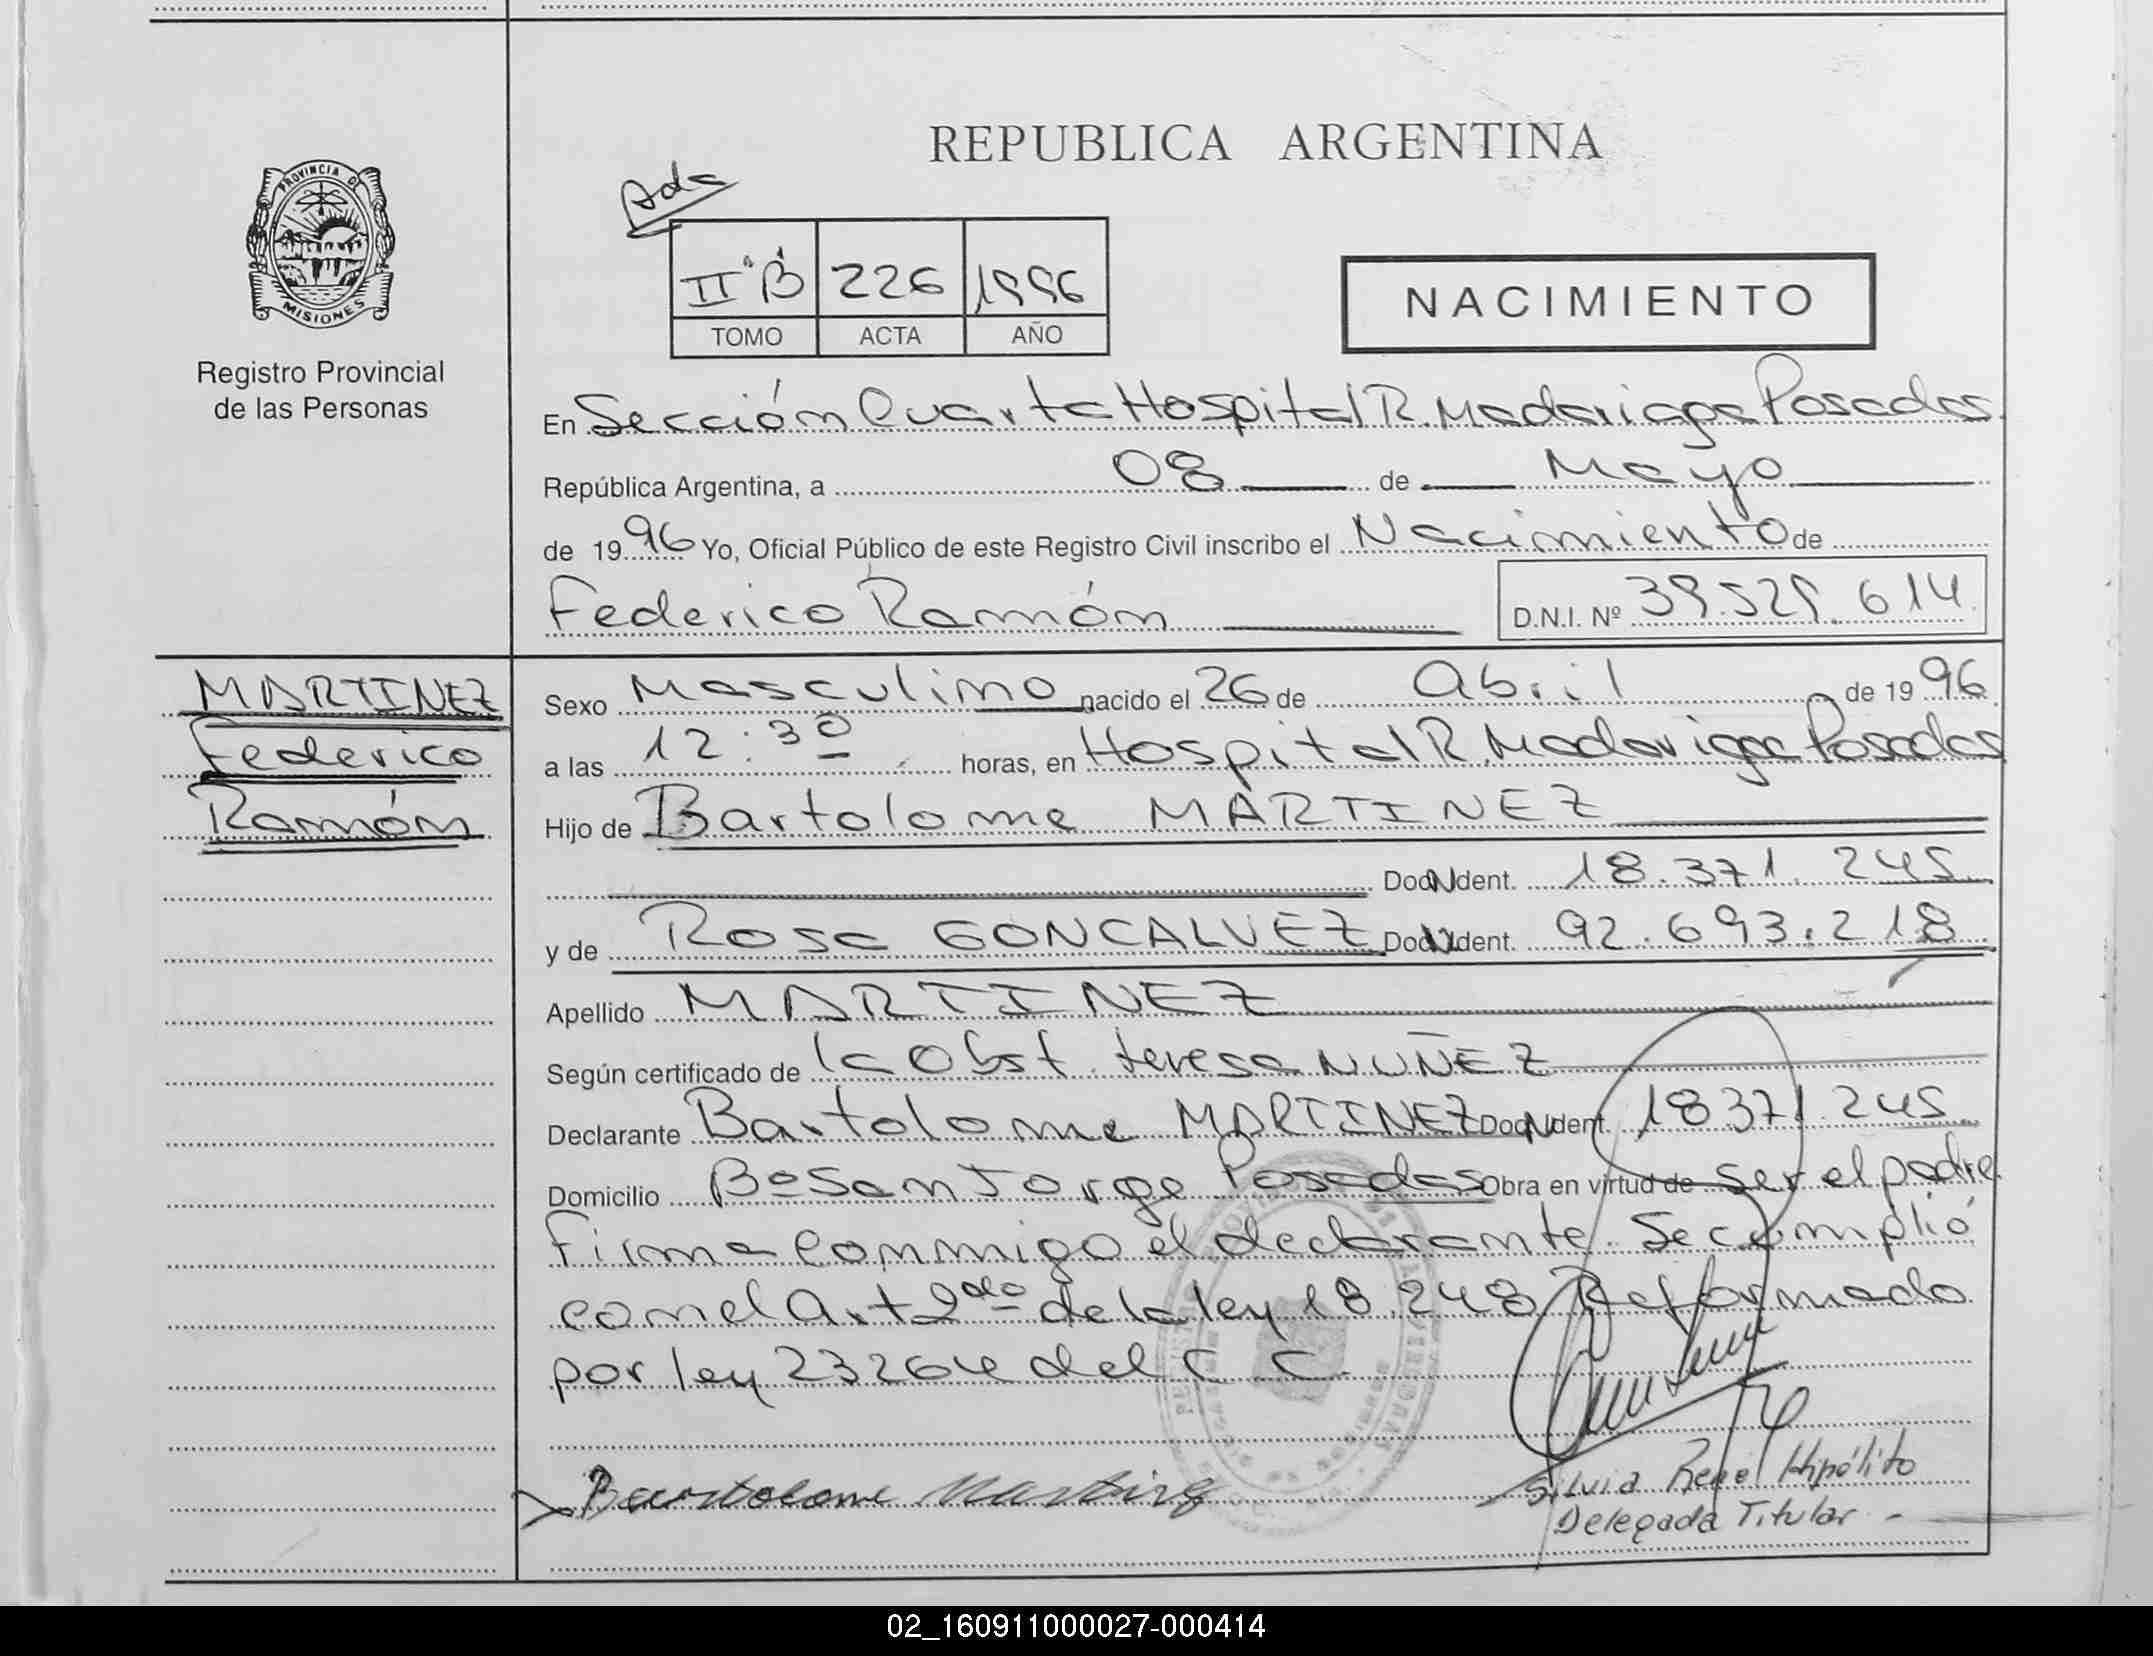 REPUBLICA ARGENTINA
PROVINCIA DE
MISIONES
Registro Provincial
de las Personas
II °B 226 1996
TOMO ACTA AÑO
NACIMIENTO
En Sección Cuarta Hospital R. Madariaga Posadas.
República Argentina, a 08 de Mayo
de 1996 Yo, Oficial Público de este Registro Civil inscribo el Nacimiento de
Federico Ramón
D.N.I. Nº 39.529.614
MARTINEZ
Federico
Ramón
Sexo Masculino nacido el 26 de Abril de 1996
a las 12:30 horas, en Hospital R. Madariaga Posadas
Hijo de Bartolome MARTINEZ
Doc N Ident. 18.371.245
y de Rosa GONCALVEZ Doc N Ident. 92.693.218
Apellido MARTINEZ
Según certificado de la Obst. teresa NUÑEZ
Declarante Bartolome MARTINEZ Doc N Ident. 18371.245
Domicilio Bº San Jorge Posadas Obra en virtud de ser el padre
Firma Conmigo el declarante. Se cumplió
con el Art 2do de la ley 18.248 Reformado
por ley 23264 del C. C.
Bartolome Martinez
Silvia Hipólito
Delegada Titular.-
02_160911000027-000414